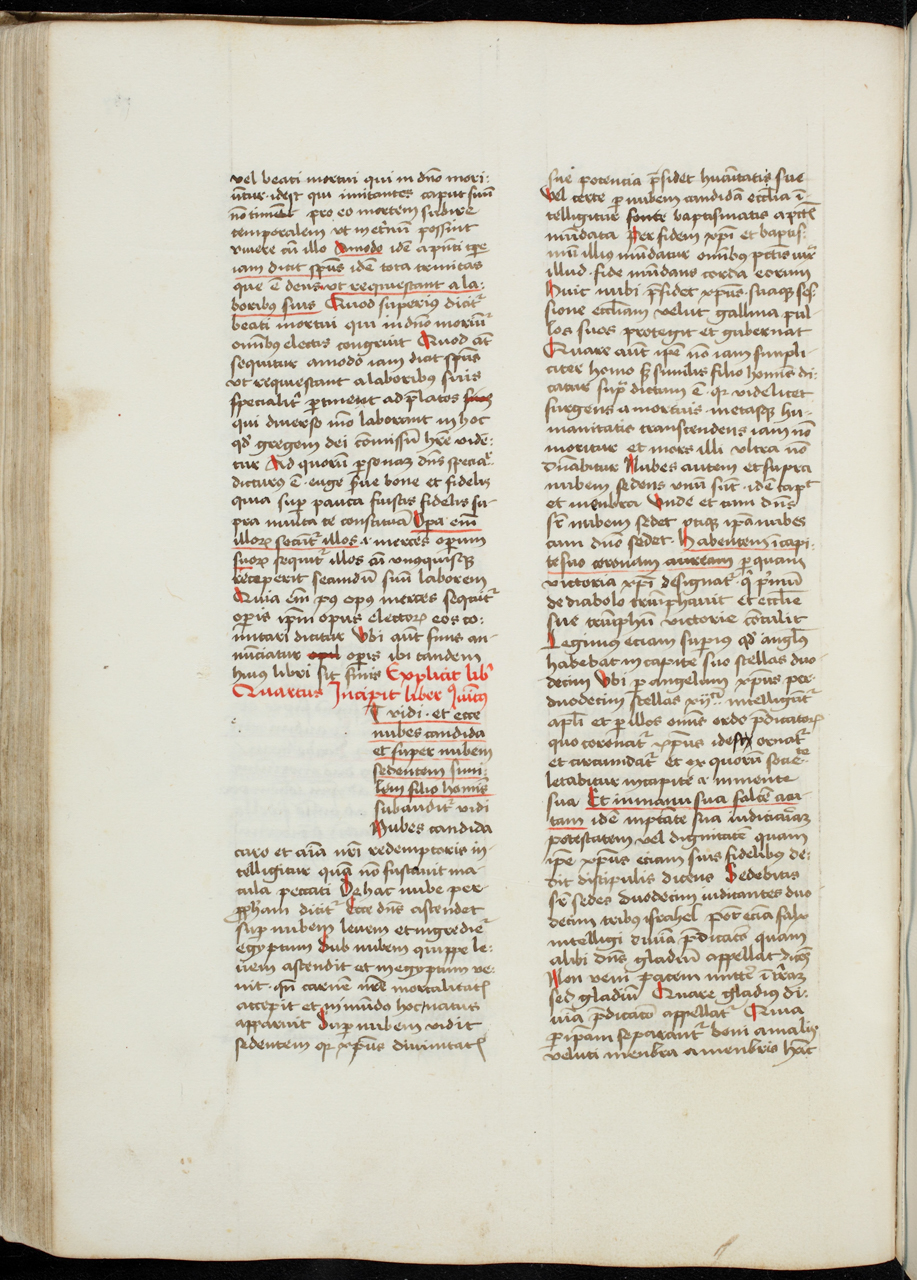 vel beati mortui qui in dn̄o mori-
ūtur · idest qui imitantes caput suū
nō timēt pro eo mortem subire
temporalem vt in et̄nū possint
viuere cū illo Amodo idē a pn̄ti tpe
iam dicit spūs idē tota trinitas
que ē deus vt requiescant a la-
boribus suis Quod superius dicit̄
beati mortui qui in dn̄o moriūt̄
omībꝰ electis congruit Quod at̄
sequitur amodo iam dicit spūs
vt requiescant a laboribꝰ suis
specialit̄ ꝑtinent ad p̄latos
qui diuerso mō laborant in hoc
qd̄ gregem dei cōmissū hr̄e vide-
tur Ad quorū ꝑsonas dn̄s special̄r
dicturꝰ ē · euge s̄ue bone et fidelis
quia suꝑ pauca fuisti fidelis su-
pra multa te constituā Oꝑa em̄
illoꝝ secūt̄ illos · i · merces oꝑum
suoꝝ sequūt̄ illos cū vnusquisqꝫ
receperit secundū suū laborem
Quia em̄ pꝰ opꝰ merces sequit̄
oꝑis ipm̄ opus electoꝝ eos co-
mitari dicitur Vbi aūt finis an-
nūciatur oꝑis ibi tandem
huiꝰ libri sit finis Explicit lib̄
Quartus Incipit liber Quītꝰ
T vidi · et ecce
nubes candida
et super nubem
sedentem simi-
lem filio homīs
subaudit̄ vidi
Nubes candida
caro et aīa nr̄i redemptoris in-
telligitur quā nō fuscauit ma-
cula peccati De hac nube per
ꝓph̄am dicit̄ Ecce dn̄s ascendet
suꝑ nubem leuem et ingrediet̄
egyptum Sub nubem quippe le-
uem ascendit et in egyptum ve-
nit · qn̄ carnē nr̄e mortalitat̄
accepit et in mūdo hoc natus
apparuit Suꝑ nubem vidit
sedentem qꝛ xp̄us diuinitat̄
sue potencia p̄sidet hūanitatis sue
Vel certe ꝑ nubem candidā eccl̄ia ī-
telligitur fonte baptismatis a pct̄
mūdata Per fidem xp̄i et baptis-
mū illiꝰ mūdatur omībus pct̄is iux̄
illud · fide mūdans corda eorum
Huic nubi p̄sidet xp̄us · suaqꝫ ses-
sione eccl̄iam velut gallina pul-
los suos protegit et gubernat
Quare aūt ipe nō iam simpli-
citer homo sꝫ similis filio homīs di-
catur sup̄ dictum ē · qꝛ videlicet
surgens a mortuis · metasqꝫ hu-
manitatis transcendens iam nō
moritur et mors illi vltra nō
dn̄abitur Nubes autem et supra
nubem sedens vnū sūt · idē caput
et membra Vnde et cum dn̄s
sr̄ nubem sedet vtiqꝫ ipa nubes
cum dn̄o sedet · Habentem ī capi-
te suo coronam auream ꝑ quam
victoria xp̄i designat̄ · q̄ p̄mū
de diabolo triūphauit et eccl̄ie
sue triūphū victorie cōtulit
Legimus eciam supiꝰ qd̄ angl̄us
habebat in capite suo stellas duo-
decim Vbi ꝑ angelum xp̄us per
duodecim stellas xij intelligūt̄
apl̄i et ꝑ illos omīs ordo p̄dicatoꝝ
quo coronat̄ xp̄us idest ornat̄
et circūdat̄ et ex quorū societate
letabitur in capite · i · in mente
sua Et in manu sua falcē acu-
tam idē in ptāte sua iudiciariaꝫ
potestatem vel dignitatē quam
ipe xp̄us eciam suis fidelibus de-
dit discipulis dicens Sedebitis
sr̄ sedes duodecim iudicantes duo-
decim tribus israhel Pōt eciā falx
intelligi diuīa p̄dicatō quam
alibi dn̄s gladiū appellat dicēs
Non veni pacem mitt̄e ī t̄raꝫ
sed gladiū Quare gladius di-
uīa p̄dicatō appellat̄ Quia
ꝑ ipam separant̄ boni a malis
veluti menbra a menbris hāc